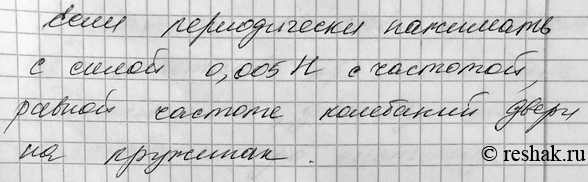 если периодически нажимать
с силой 0,005 Н с частотой,
равной частоте колебаний двери
на пружинах.
© reshak.ru